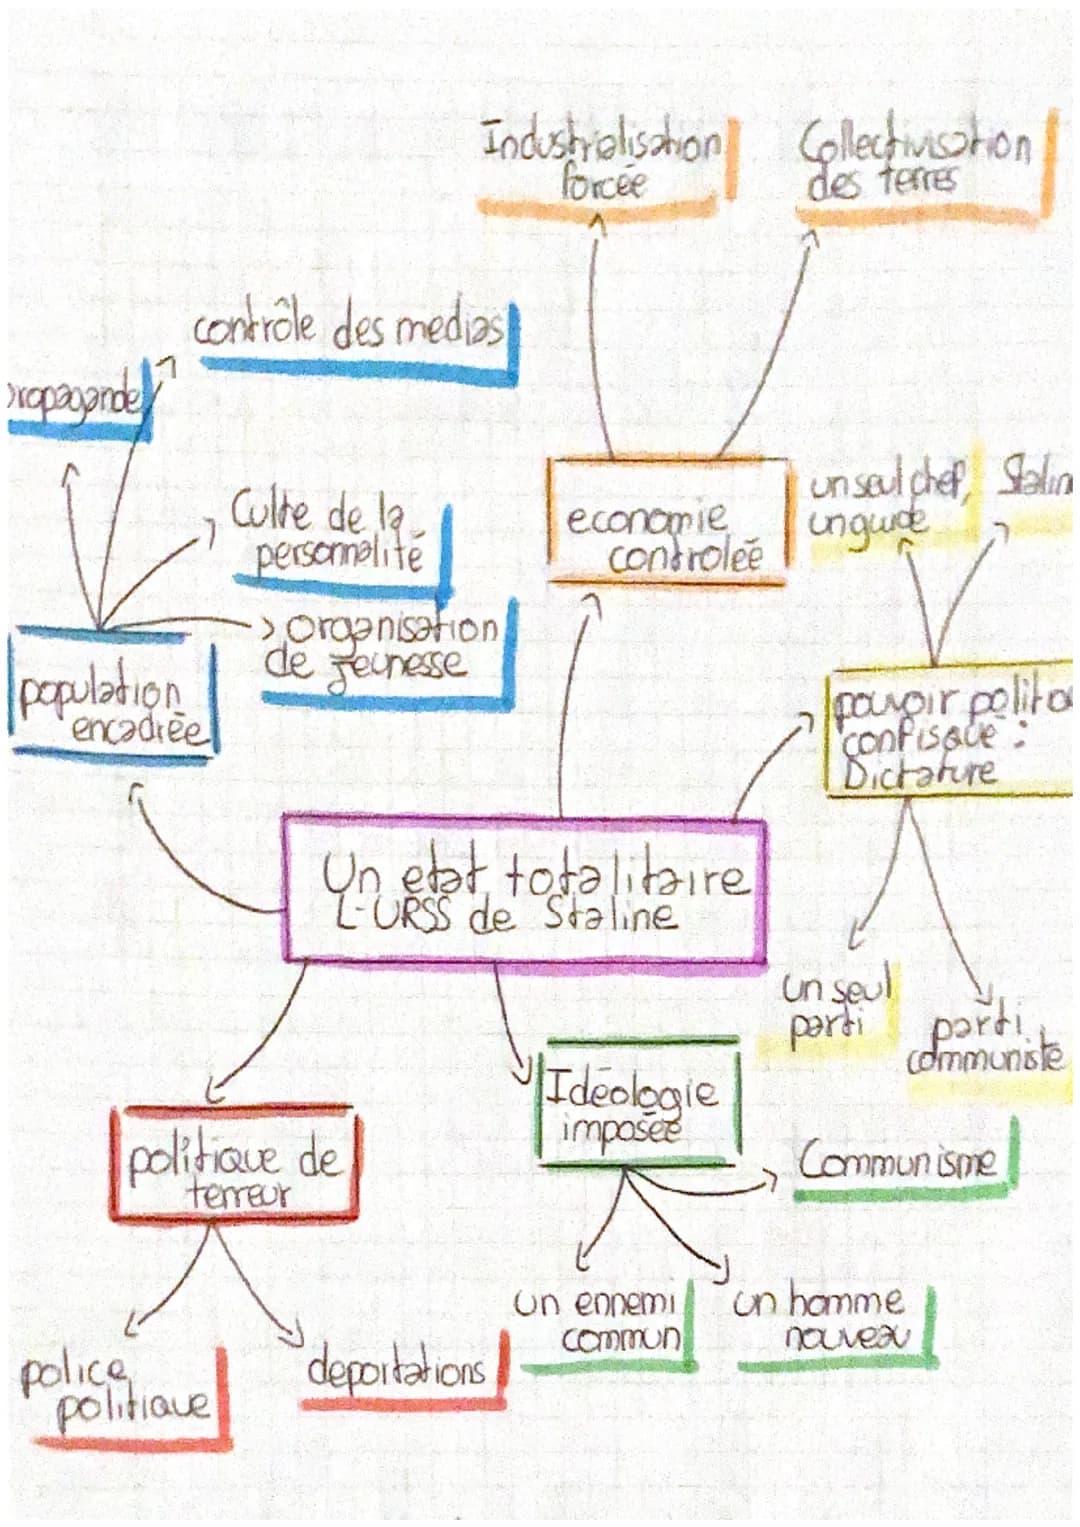 Industrialisation
forcée
Collectivisation
des terres
contrôle des medias
propagande
Culte de la
personnalité
organisation
de jeunesse
population
encadrée
economie
controleé
un seul chef,
un guide
Stalin
pouvoir politq
confisqué :
Dictature
Un etat totalitaire
L-URSS de Staline
un seul
parti
parti
communiste
politique de
terreur
Idéologie
imposée
Communisme
un ennemi
commun
un homme
nouveau
police
politique
deportations